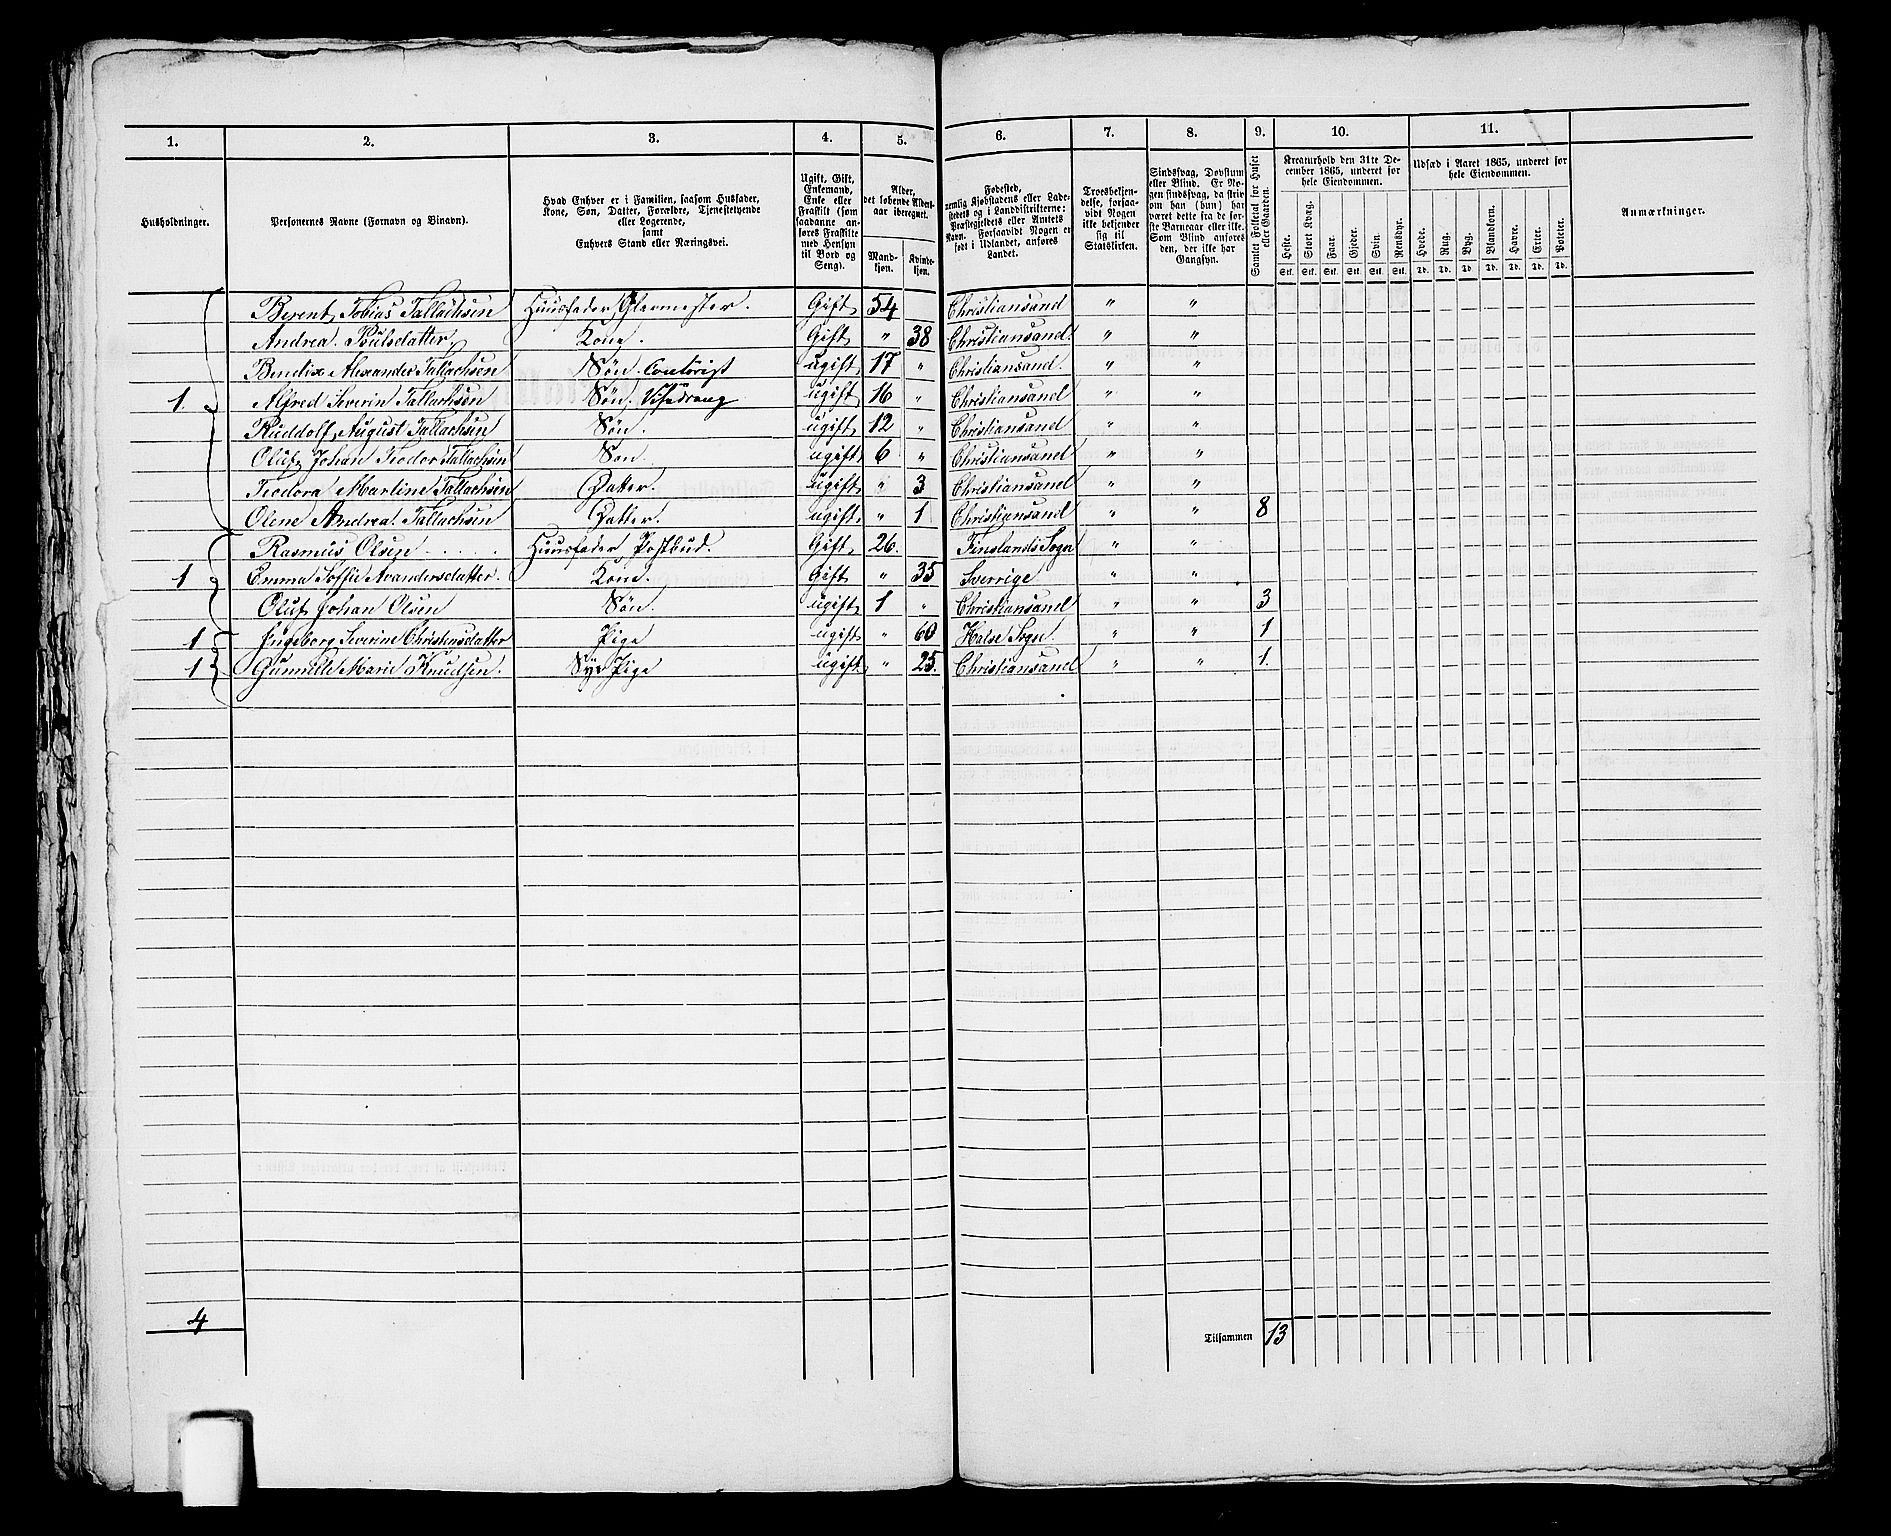 1. 2. 3. 4. 5. 6. 7. 8. 9. 10. 11.
Husholdninger.
Personernes Navne (Fornavn og Binavn).
Hvad Enhver er i Familien, saasom Husfader,
Kone, Søn, Datter, Forældre, Tjenestetyende
eller Logerende,
samt
Enhvers Stand eller Næringsvei.
Ugift, Gift,
Enkemand,
Enke eller
Fraskilt (som
saadanne an-
føres Fraskilte
med Hensyn
til Bord og
Seng).
Alder,
det løbende Alders-
aar iberegnet.
Mand-
kjøn.
Kvinde-
kjøn.
Fødested,
nemlig Kjøbstadens eller Lade-
stedets og i Landdistrikterne:
Præstegjeldets eller Amtets
Navn. Forsaavidt Nogen er
født i Udlandet, anføres
Landet.
Troesbekjen-
delse, forsaa-
vidt Nogen
ikke bekjender
sig til
Statskirken.
Sindssvag, Døvstum
eller Blind. Er No-
gen sindssvag, da skriv
om han (hun) har
været dette fra de før-
ste Barneaar eller ikke.
Som Blind anføres
den, der ikke har
Gangsyn.
Samlet Folketal for Huset
eller Gaarden.
Kreaturhold den 31te De-
cember 1865, underet for
hele Eiendommen.
Heste. Stort Kvæg. Faar. Gjeder. Svin. Rensdyr.
Stk. Stk. Stk. Stk. Stk. Stk.
Udsæd i Aaret 1865, underet for
hele Eiendommen.
Hvede. Rug. Byg. Blandkorn. Havre. Erter. Poteter.
Td. Td. Td. Td. Td. Td. Td.
Anmærkninger.
Berent Tobias Tallachsen Huusfader, Glasmester. Gift 54 Christiansand " "
Andrea Poulsdatter. Kone. Gift " 38 Christiansand. " "
Bendix Alexander Tallachsen Søn. Contorist ugift 17 " Christiansand. " "
1. Alfred Severin Tallachsen Søn. ugift 16 " Christiansand " "
Ruddolf August Tallachsen Søn. ugift 12 " Christiansand " "
Oluf Johan Teodor Tallachsen Søn. ugift 6 " Christiansand " "
Teodora Martine Tallachsen Datter. ugift " 3 Christiansand " "
Olene Andrea Tallachsen Datter. ugift " 1 Christiansand " " 8
Rasmus Olsen Huusfader Postbud. Gift 26. Finslands Sogn " "
1 Emma Soffie Avandersdatter. Kone. Gift " 35 Sverrige " "
Oluf Johan Olsen Søn. ugift 1 " Christiansand " " 3
1 Ingeborg Severine Christensdatter Pige ugift " 60 Halse Sogn. " " 1
1 Gunnille Marie Knudsen. Sye Pige ugift " 25. Christiansand " " 1.
4 Tilsammen 13